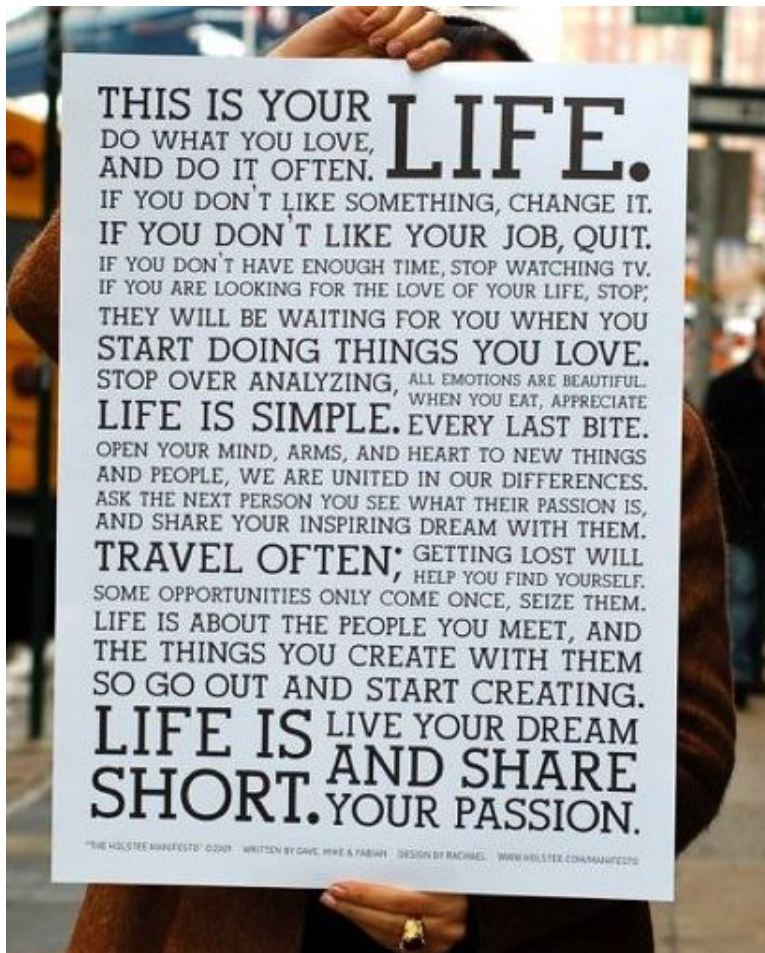 THIS IS YOUR LIFE.
DO WHAT YOU LOVE,
AND DO IT OFTEN.
IF YOU DON'T LIKE SOMETHING, CHANGE IT.
IF YOU DON'T LIKE YOUR JOB, QUIT.
IF YOU DON'T HAVE ENOUGH TIME, STOP WATCHING TV.
IF YOU ARE LOOKING FOR THE LOVE OF YOUR LIFE, STOP;
THEY WILL BE WAITING FOR YOU WHEN YOU
START DOING THINGS YOU LOVE.
STOP OVER ANALYZING,
LIFE IS SIMPLE.
ALL EMOTIONS ARE BEAUTIFUL.
WHEN YOU EAT, APPRECIATE
EVERY LAST BITE.
OPEN YOUR MIND, ARMS, AND HEART TO NEW THINGS
AND PEOPLE, WE ARE UNITED IN OUR DIFFERENCES.
ASK THE NEXT PERSON YOU SEE WHAT THEIR PASSION IS,
AND SHARE YOUR INSPIRING DREAM WITH THEM.
TRAVEL OFTEN;
GETTING LOST WILL
HELP YOU FIND YOURSELF.
SOME OPPORTUNITIES ONLY COME ONCE, SEIZE THEM.
LIFE IS ABOUT THE PEOPLE YOU MEET, AND
THE THINGS YOU CREATE WITH THEM
SO GO OUT AND START CREATING.
LIFE IS
SHORT.
LIVE YOUR DREAM
AND SHARE
YOUR PASSION.
"THE HOLSTEE MANIFESTO" ©2009 WRITTEN BY DAVE, MIKE & FABIAN DESIGN BY RACHAEL WWW.HOLSTEE.COM/MANIFESTO